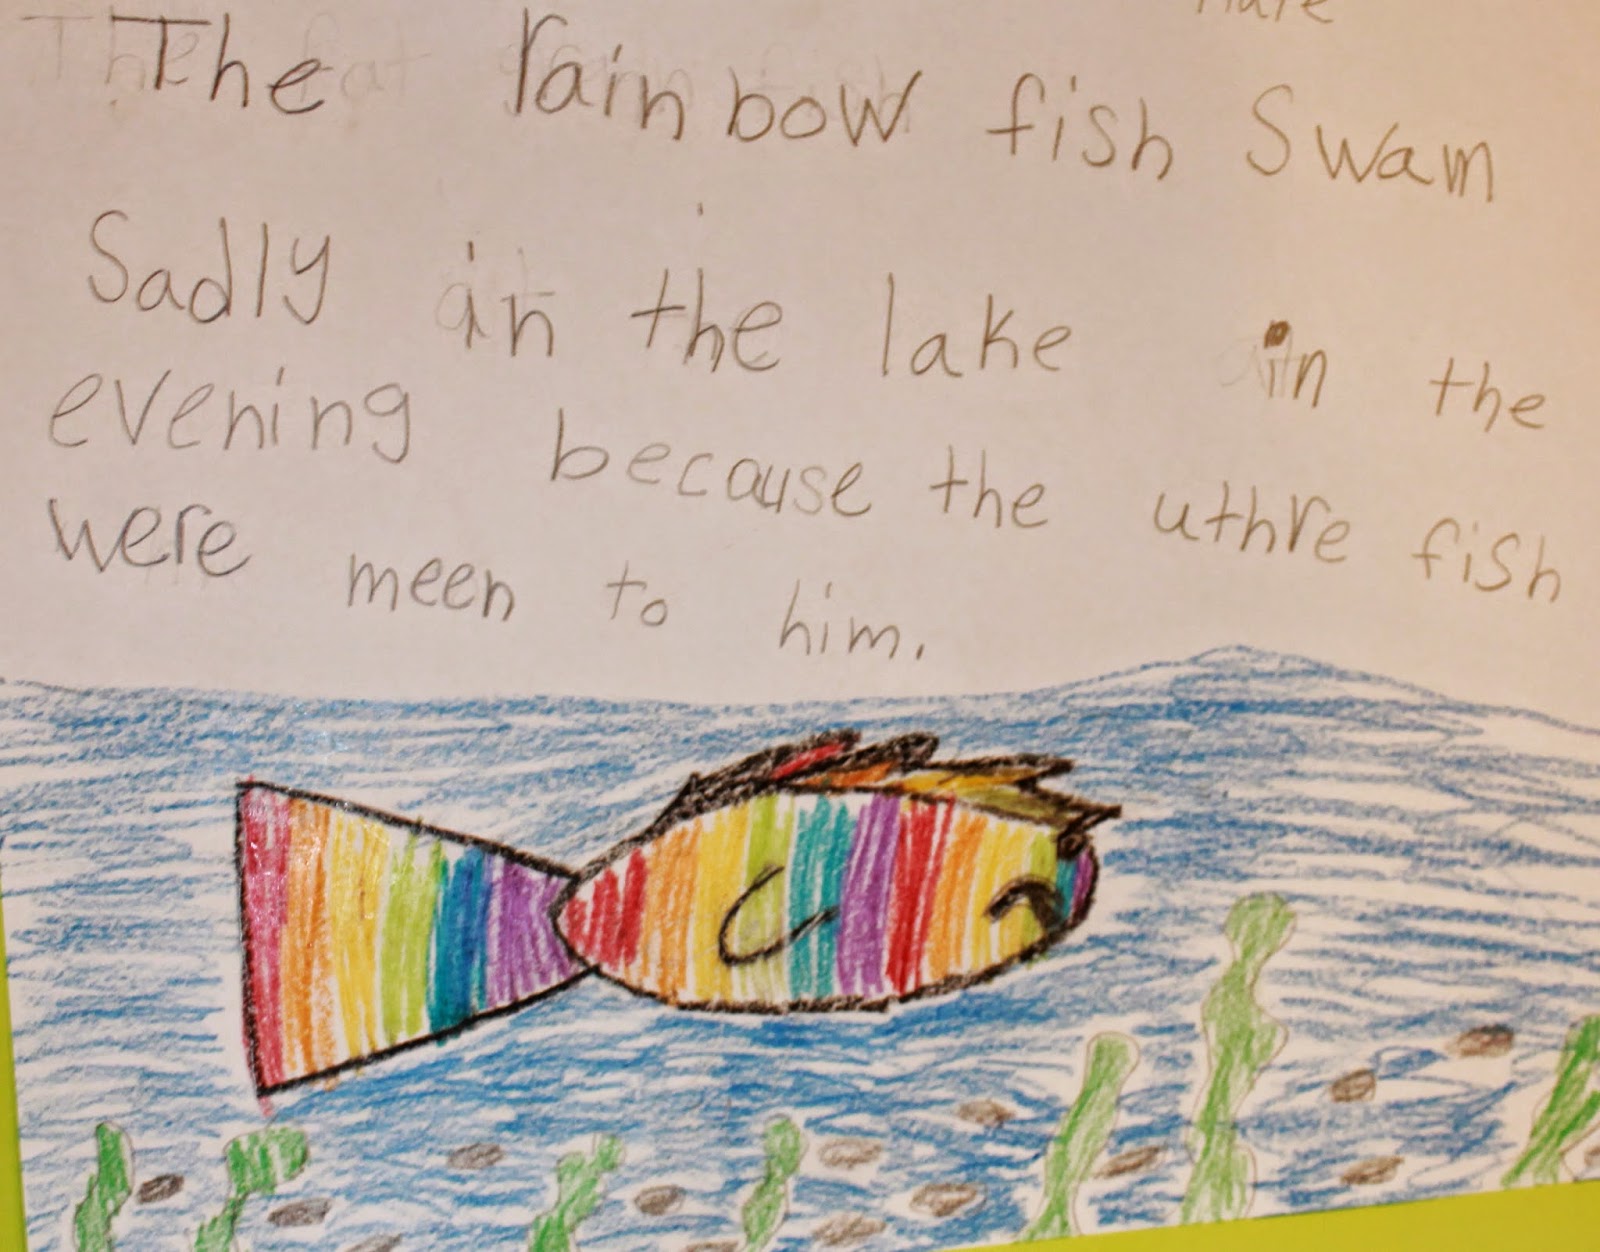 The rainbow fish Swam
Sadly in the lake in the
evening because the uthre fish
were meen to him.